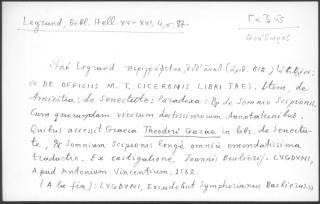 Legrand, Bibl. Hell. XV-XVI, 4, σ. 87.
Γαζῆς
Θεόδωρος
Ὑπὸ Legrand περιγράφεται,
« DE OFFICIIS M. T. CICERONIS LIBRI TRES. Item, de
Amicitia: de Senectute: Paradoxa: & de Somnio Scipionis.
Cum quorundam virorum doctissimorum Annotationibus.
Quibus accessit Graeca Theodori Gazae in lib. de Senectu-
te, & Somnium Scipionis longè omniũ emendatissima
traductio. Ex castigatione Ioannis Boulierij. LVGDVNI,
Apud Antonium Vincentium. 1562.
(A la fin): LVGDVNI, Excudebat Symphorianus Barbierus »